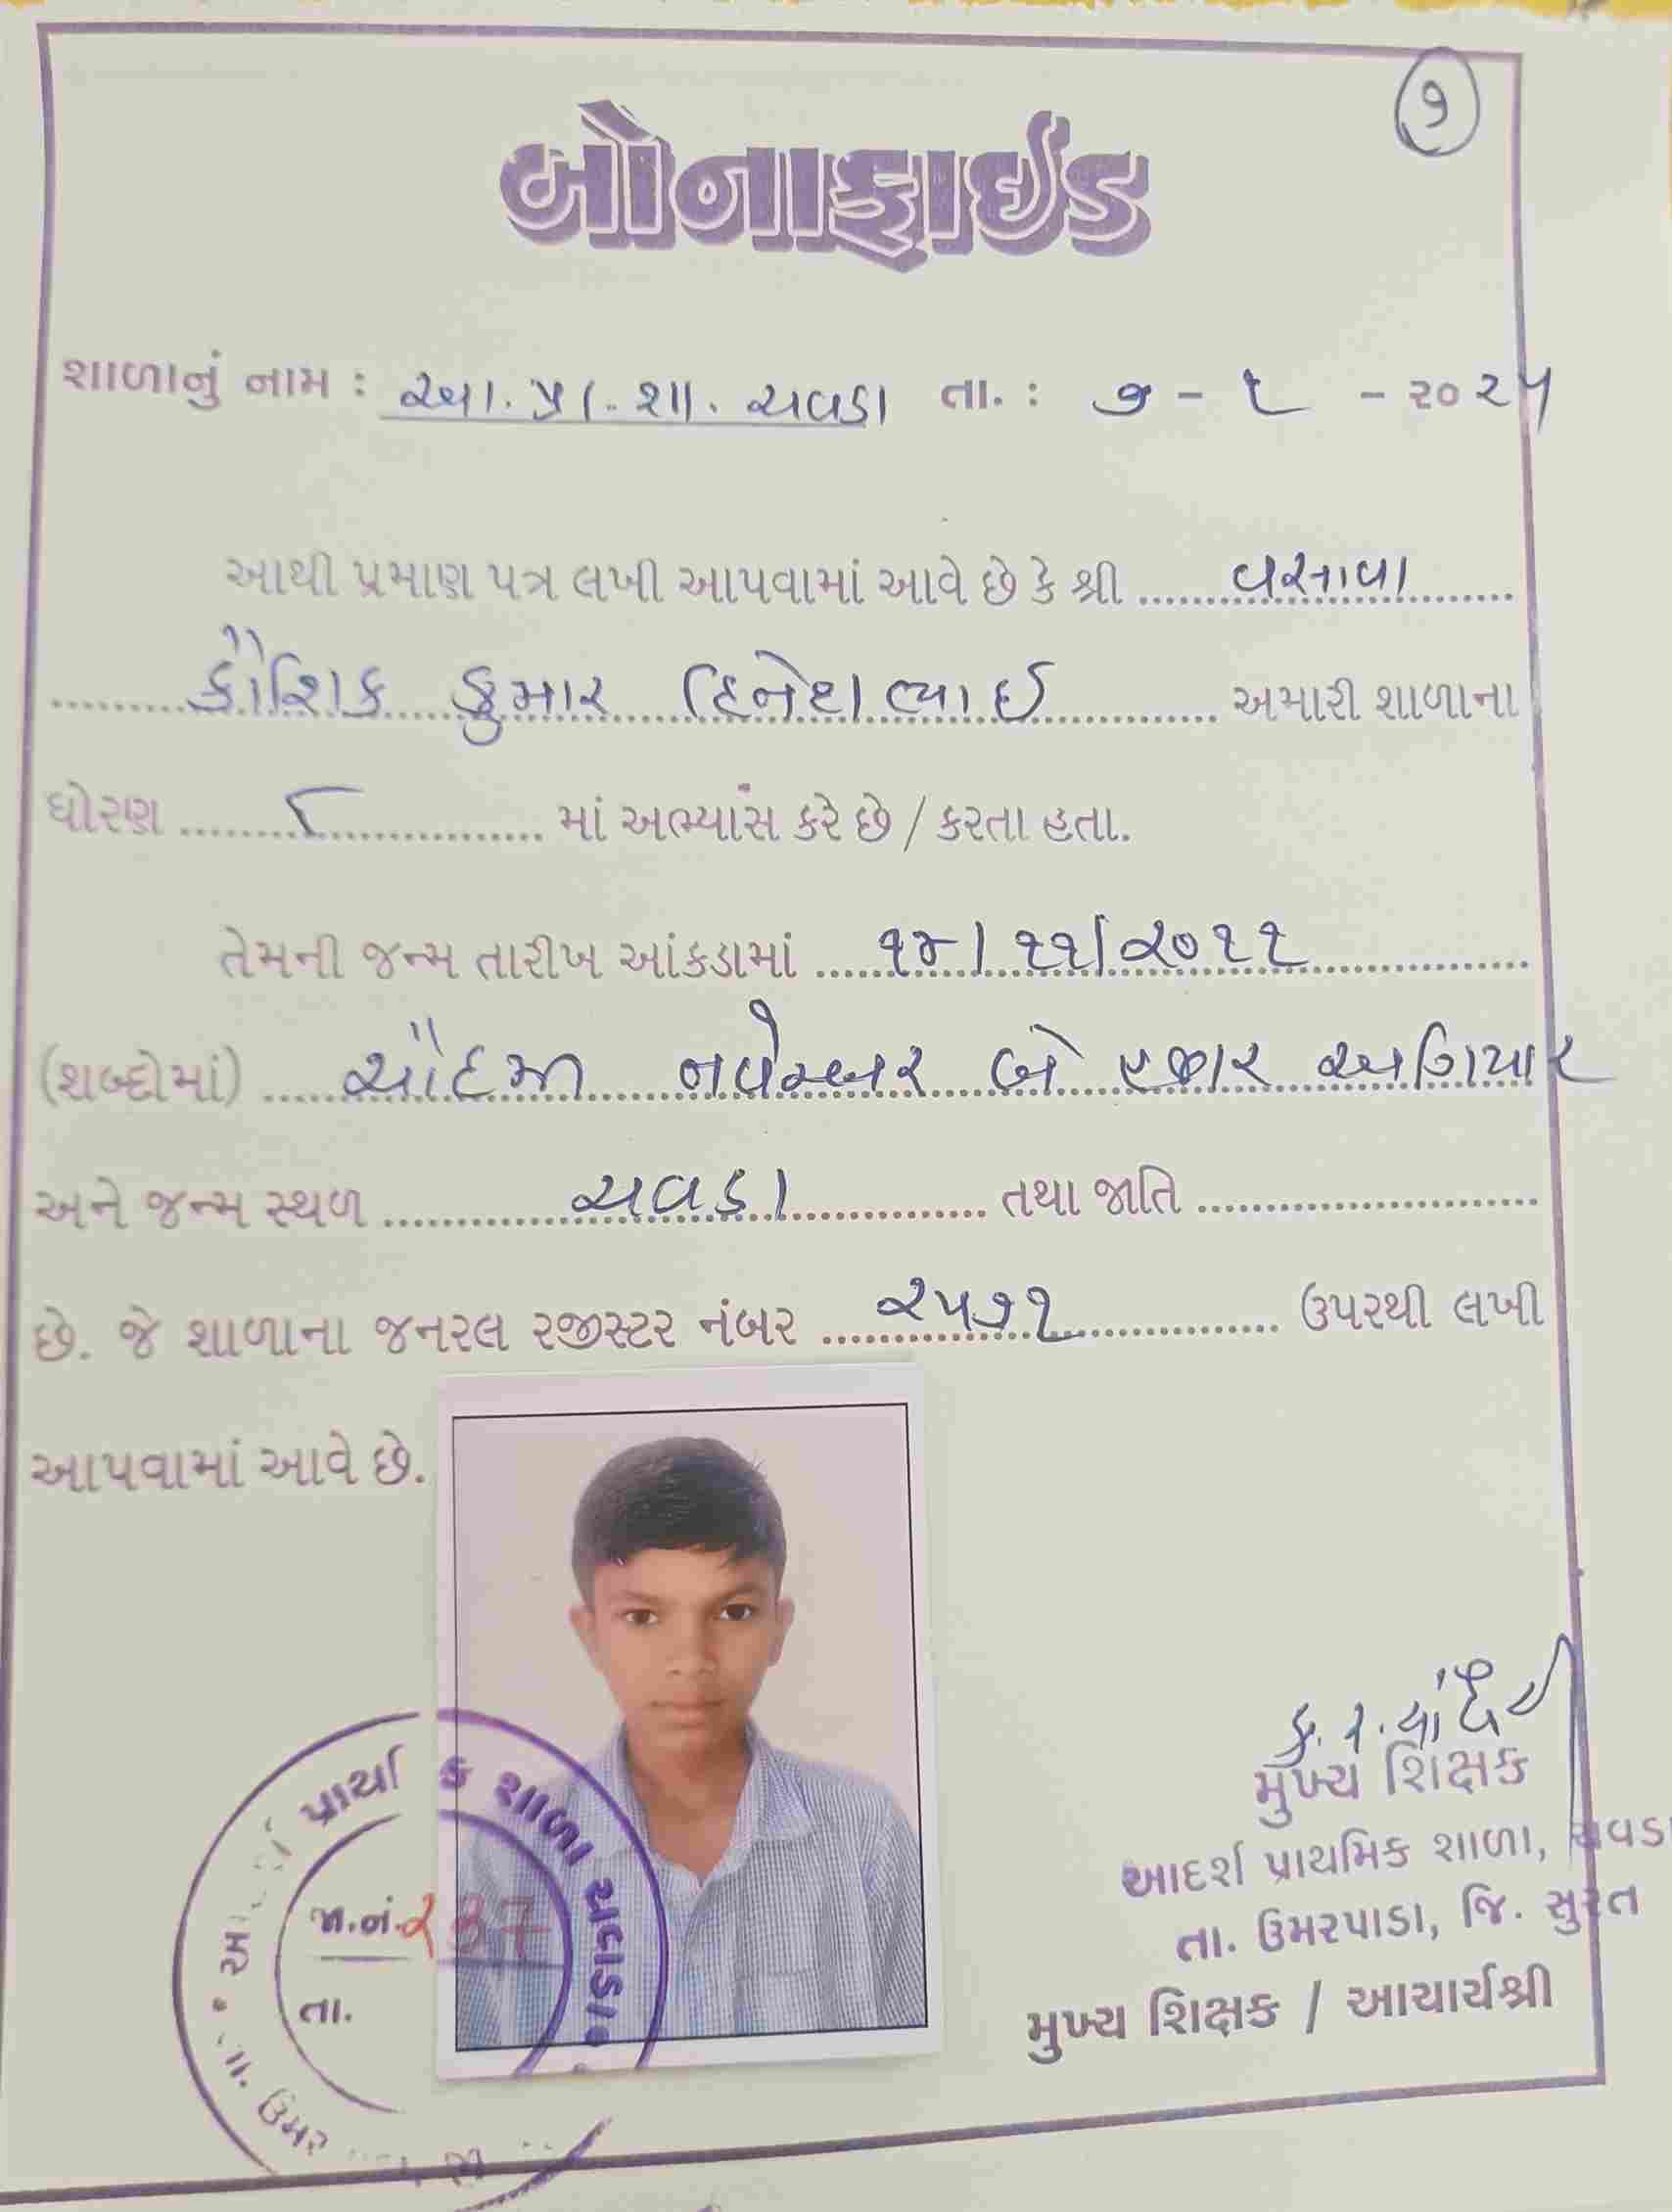 ૭
બોનાફાઈડ
શાળાનું નામ : આ. પ્રા. શા. ચવડા તા. : ૭ - ૬ - ૨૦૨૫
આથી પ્રમાણ પત્ર લખી આપવામાં આવે છે કે શ્રી વસાવા
કૌશિક કુમાર દિનેશભાઈ અમારી શાળાના
ધોરણ ૮ માં અભ્યાસ કરે છે / કરતા હતા.
તેમની જન્મ તારીખ આંકડામાં ૧૪/૧૧/૨૦૧૧
(શબ્દોમાં) ચૌદમી નવેમ્બર બે હજાર અગિયાર
અને જન્મ સ્થળ ચવડા તથા જાતિ
છે. જે શાળાના જનરલ રજીસ્ટર નંબર ૨૫૭૧ ઉપરથી લખી
આપવામાં આવે છે.
મુખ્ય શિક્ષક
આદર્શ પ્રાથમિક શાળા, ચવડા
તા. ઉમરપાડા, જિ. સુરત
મુખ્ય શિક્ષક / આચાર્યશ્રી
શાળા ચવડા
જા.નં. 237
તા.
તા. ઉમર